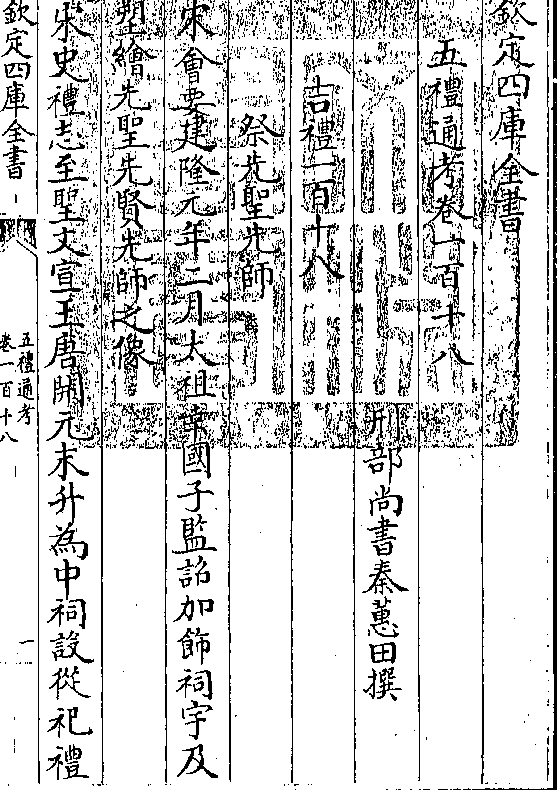 欽定四庫全書
五禮通考卷一百十八
刑部尚書秦蕙田撰
吉禮一百十八
祭先聖先師
宋會要建隆元年二月太祖幸國子監詔加飾祠宇及
塑繪先聖先賢先師之像
宋史禮志至聖文宣王唐開元末升為中祠設從祀禮
欽定四庫全書
五禮通考
卷一百十八
一